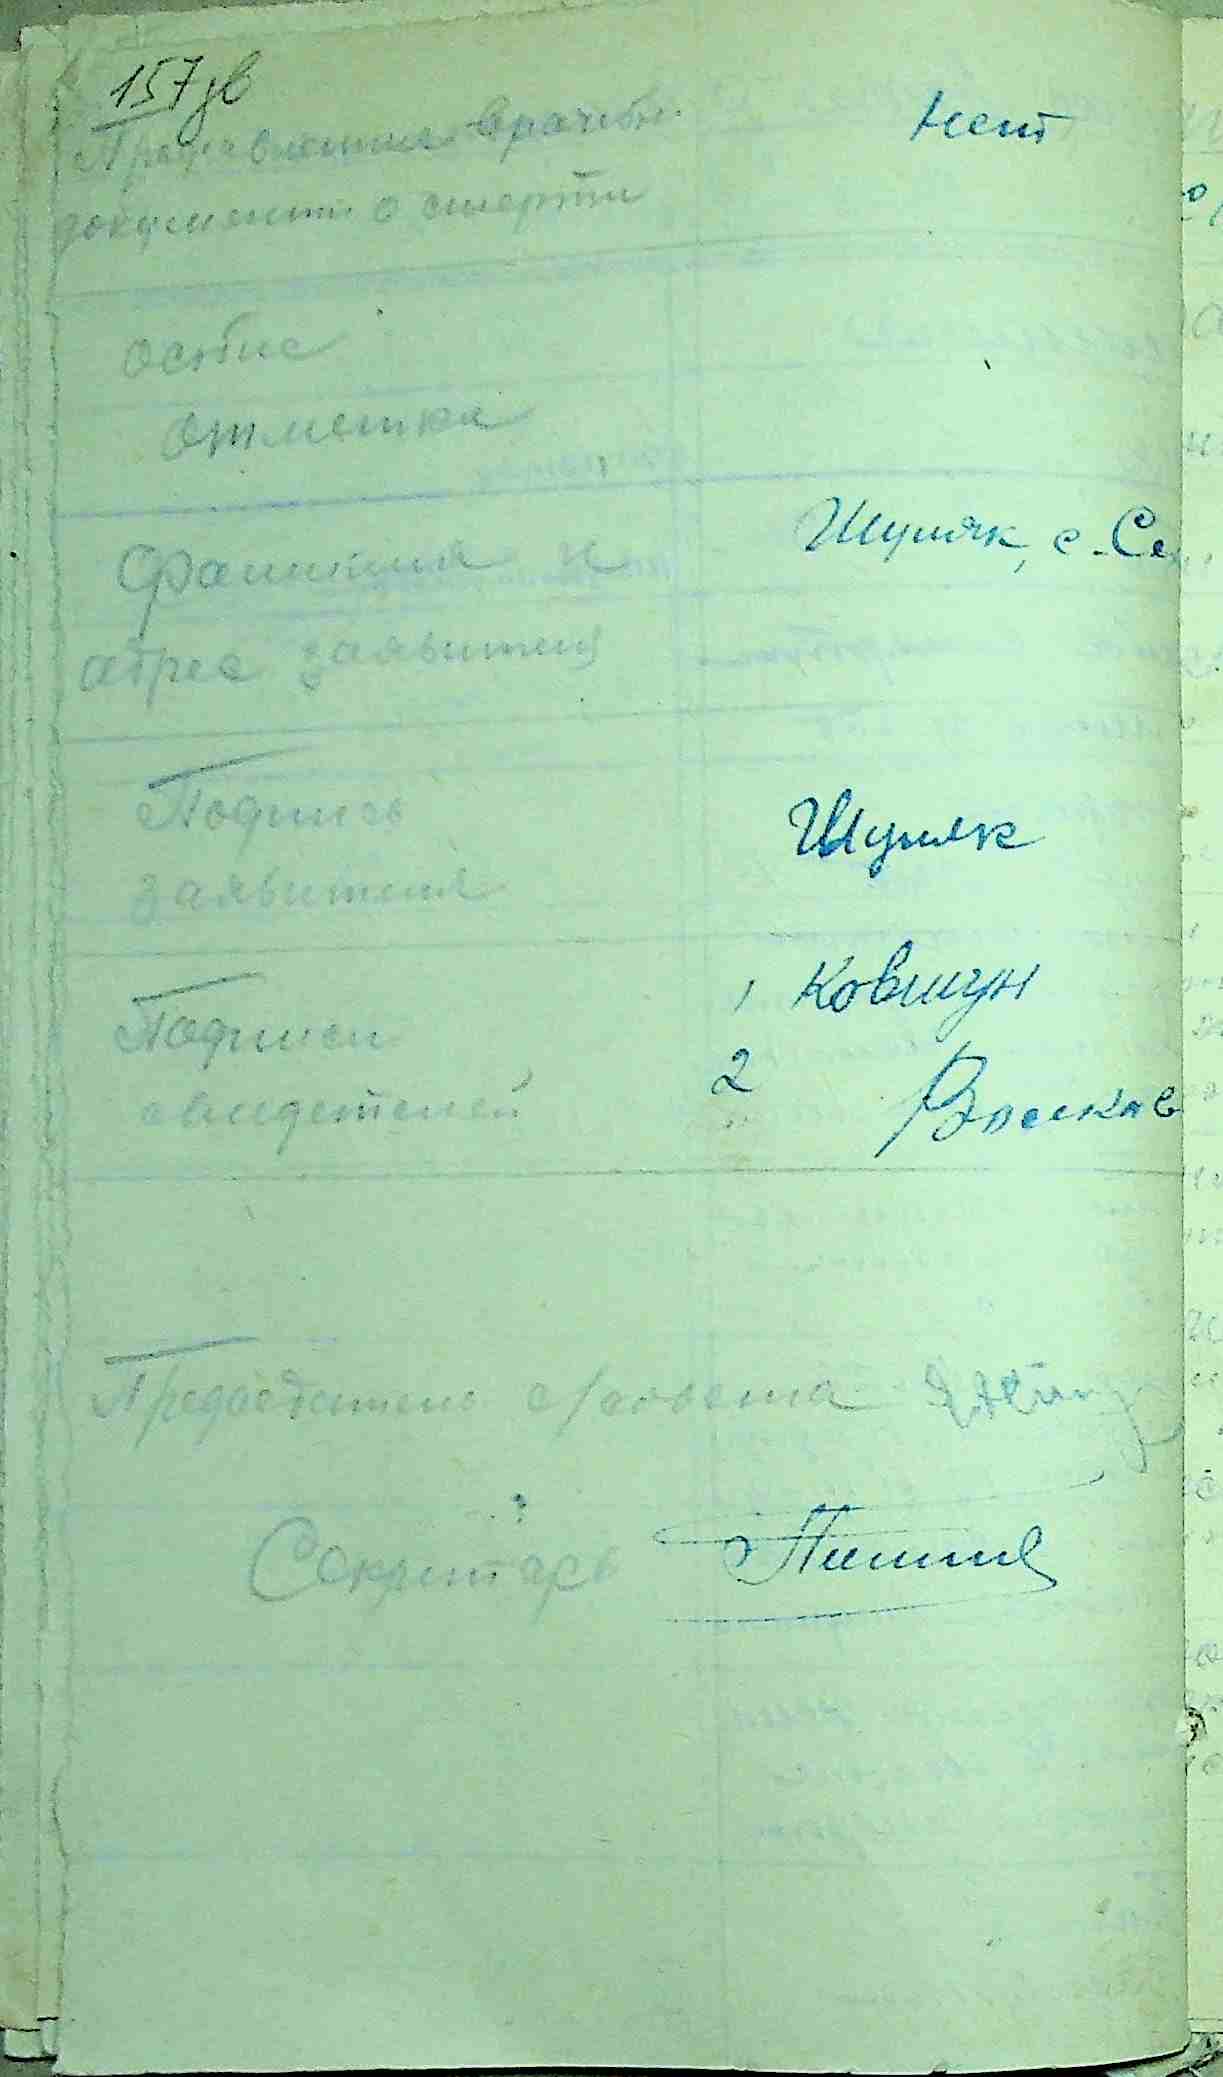 157зв
Пред'явленния врачебн.
документи о смерти
нет
особие
отметки
Фамилия и
адрес заявителя
Шуляк, с. Се
Подпись
заявителя
Шуляк
Подписи
свидетелей
1 Ковшун
2
Председатель с/совета
Секретарь